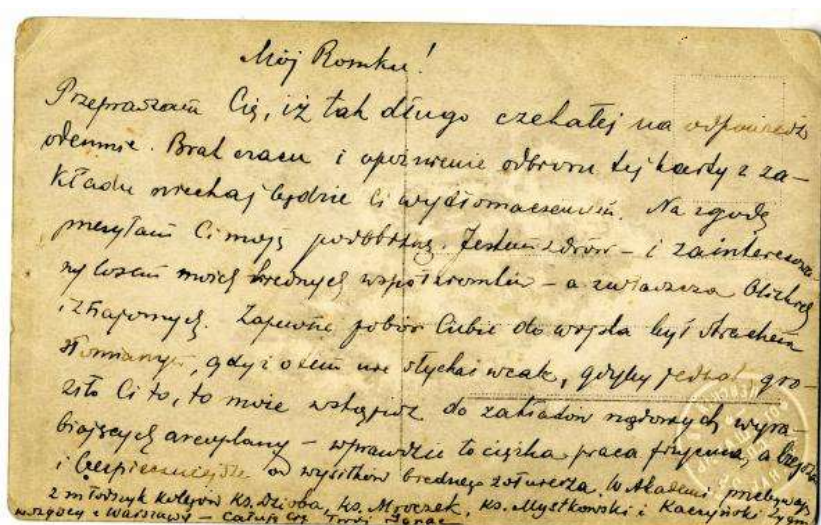 Mój Romku!
Przepraszam Cię, iż tak długo czekałeś na odpowiedź
odemnie. Brak czasu i opóźnienie odbioru tej karty z za-
kładu niechaj będzie Ci wytłomaczeniem. Na zgodę
przesyłam Ci moją podobiznę. Jestem zdrów – i zainteresowa-
ny losem moich biednych współziomków – a zwłaszcza bliskich
i znajomych. Zapewne pobór Ciebie do wojska był strachem
słomianym, gdyż o tem nie słychać wcale, gdyby jednak gro-
ziło Ci to, to może wstąpisz do zakładów rządowych wyra-
biających areoplany – wprawdzie to ciężka praca fizyczna, a
i bezpieczniejsze od wysiłków biednego żołnierza. W Akademi przebywają
z młodszych kolegów ks. Dzioba, ks. Mroczek, ks. Mystkowski i Kaczyński Zygm
z Warszawy – Całuję Cię Twój Ignac